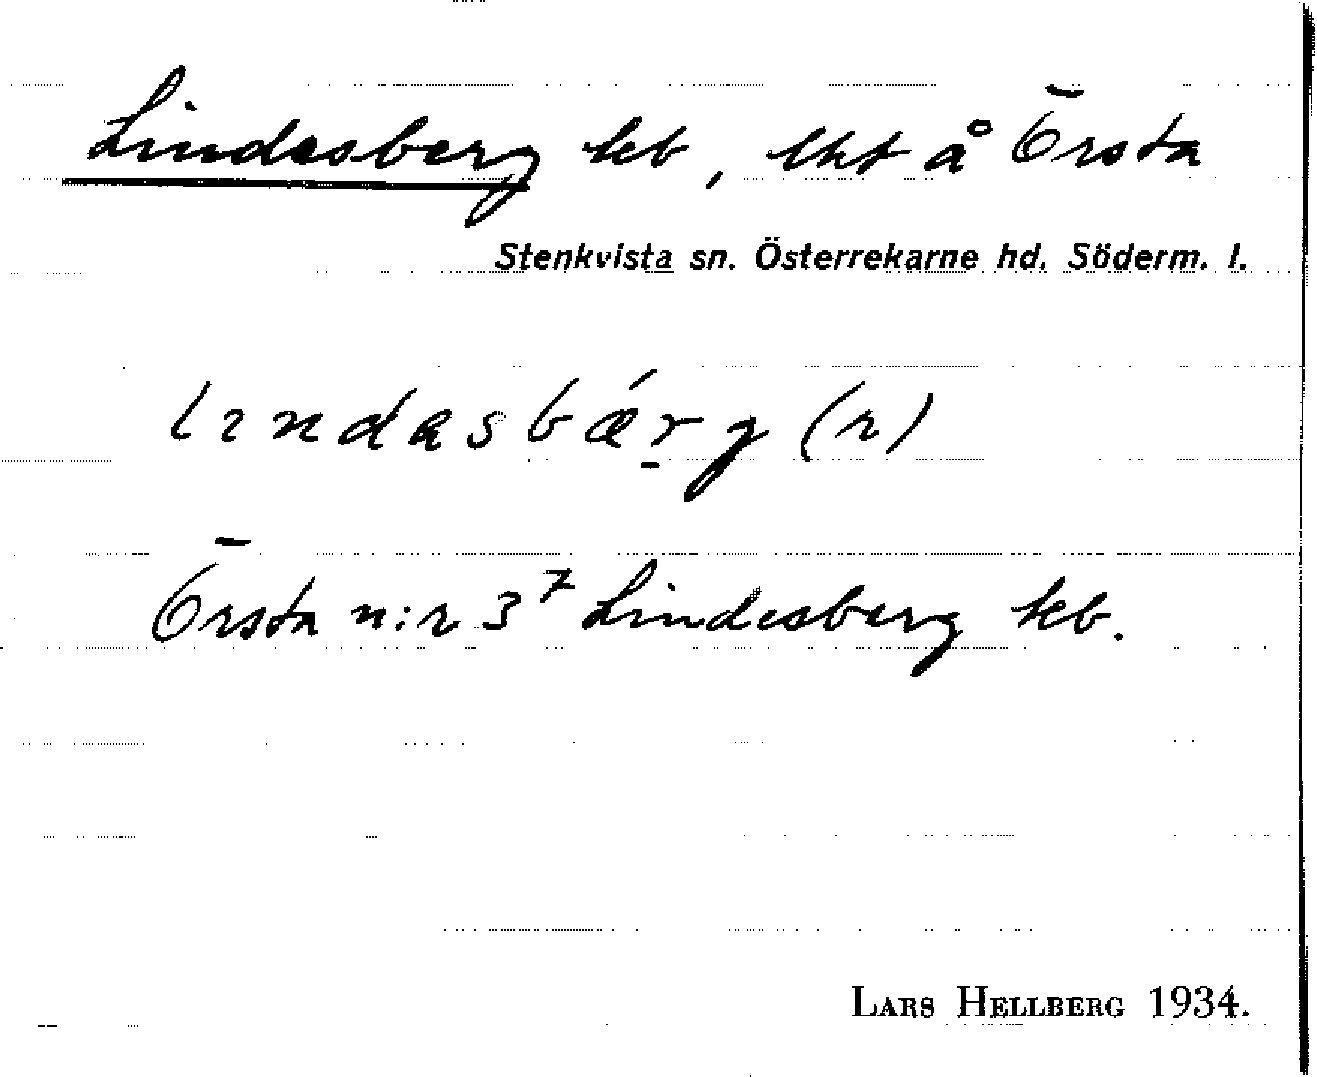 Lindesberg kb, lht å Örsta
Stenkvista sn. Österrekarne hd. Söderm. l.
lındasbǽrg (r)
Örsta n:r 3⁷ Lindesberg kb.
LARS HELLBERG 1934.